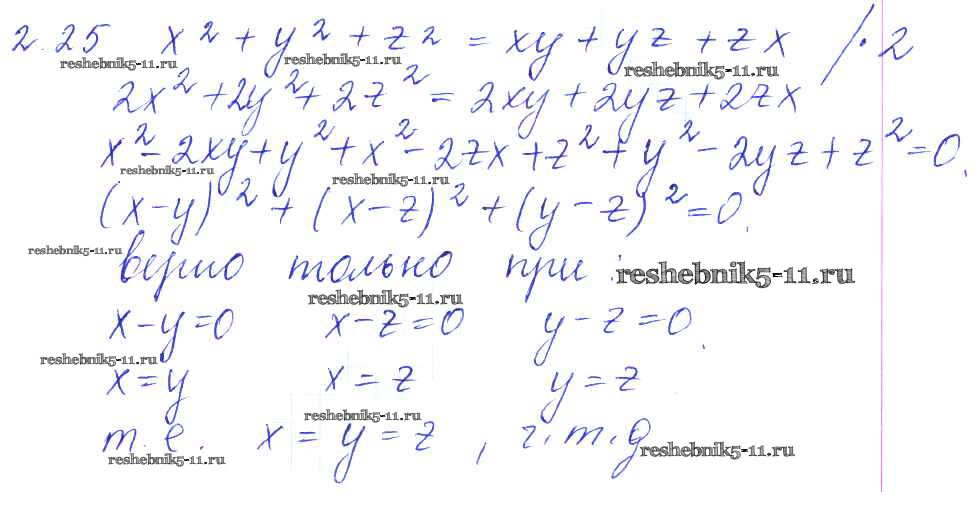 2.25 x² + y² + z² = xy + yz + zx /·2
reshebnik5-11.ru reshebnik5-11.ru reshebnik5-11.ru
2x² + 2y² + 2z² = 2xy + 2yz + 2zx
x² - 2xy + y² + x² - 2zx + z² + y² - 2yz + z² = 0
reshebnik5-11.ru reshebnik5-11.ru
(x-y)² + (x-z)² + (y-z)² = 0
reshebnik5-11.ru
верно только при: reshebnik5-11.ru
reshebnik5-11.ru
x-y=0 x-z=0 y-z=0
reshebnik5-11.ru
x=y x=z y=z
reshebnik5-11.ru
т.е. x = y = z , ч.т.д
reshebnik5-11.ru reshebnik5-11.ru